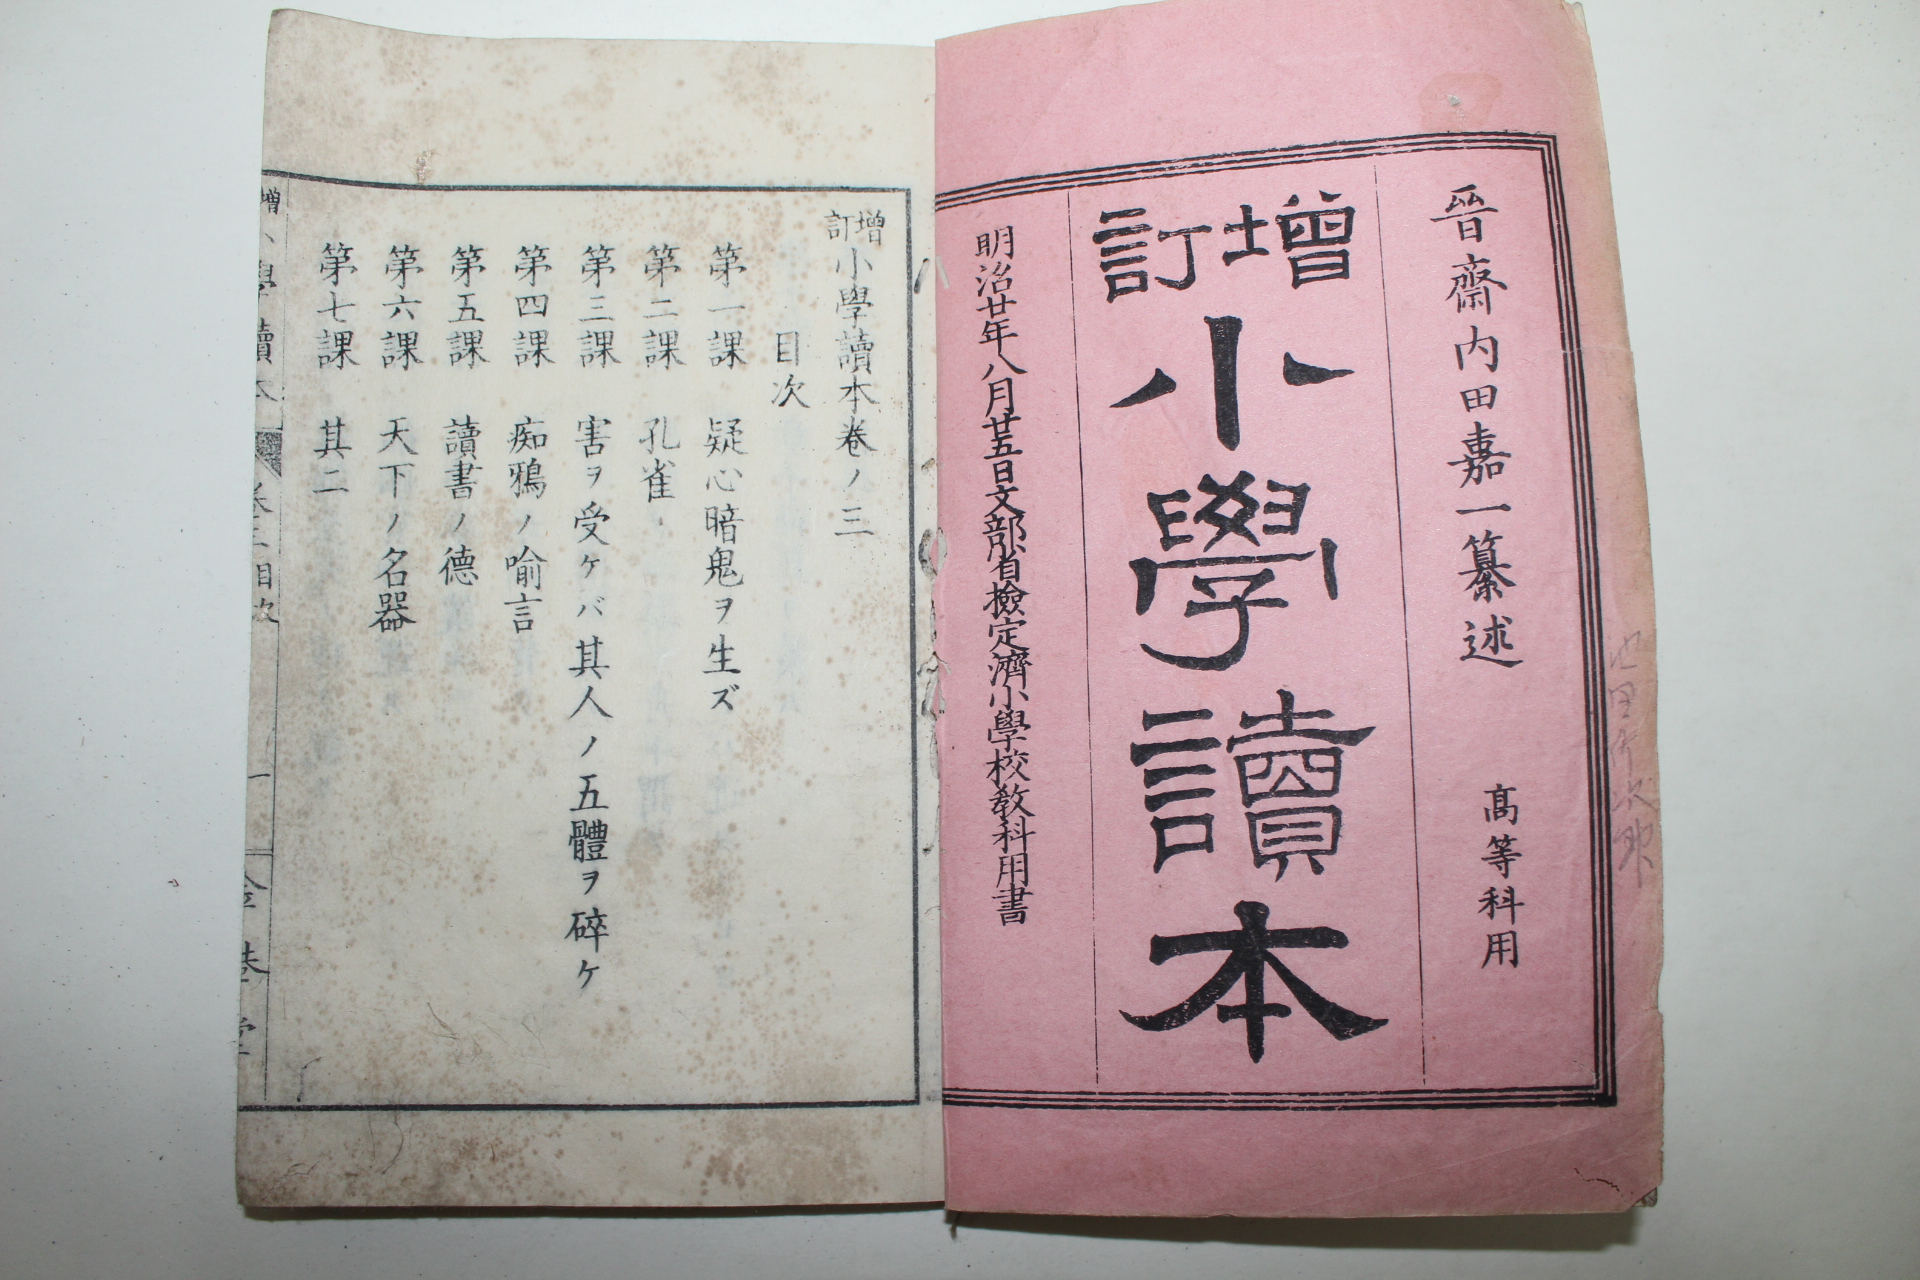 晉齋内田嘉一纂述
高等科用
増訂
小學讀本
明治廿年八月廿五日文部省檢定濟小學校教科用書
増訂小學讀本卷ノ三
目次
第一課 疑心暗鬼ヲ生ズ
第二課 孔雀
第三課 害ヲ受ケバ其人ノ五體ヲ碎ケ
第四課 痴鴉ノ喩言
第五課 讀書ノ德
第六課 天下ノ名器
第七課 其二